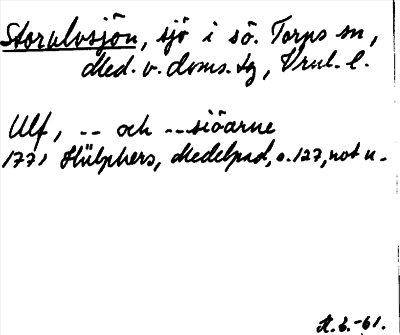 Storulvsjön, sjö i sö. Torps sn,
Med. v. doms. tg, Vnrl. l.
Ulf, -- och --siöarne
1771 Hülphers, Medelpad, s. 127, not u.
-61.